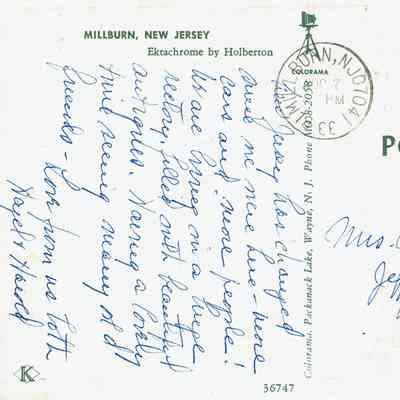 MILLBURN, NEW JERSEY
Ektachrome by Holberton
COLORAMA
MILLBURN, N.J. 07041
PM
33
Jersey has changed
since we were here - more
cars and more people!
We are living in a huge
rectory, filled with beautiful
antiques. Having a lovely
time seeing many old
friends - Love from us both
Hazel & Harold
Colorama, Packanack Lake, Wayne, N. J. Phone OX8-2058
Mrs.
Jeff
PO
K
36747